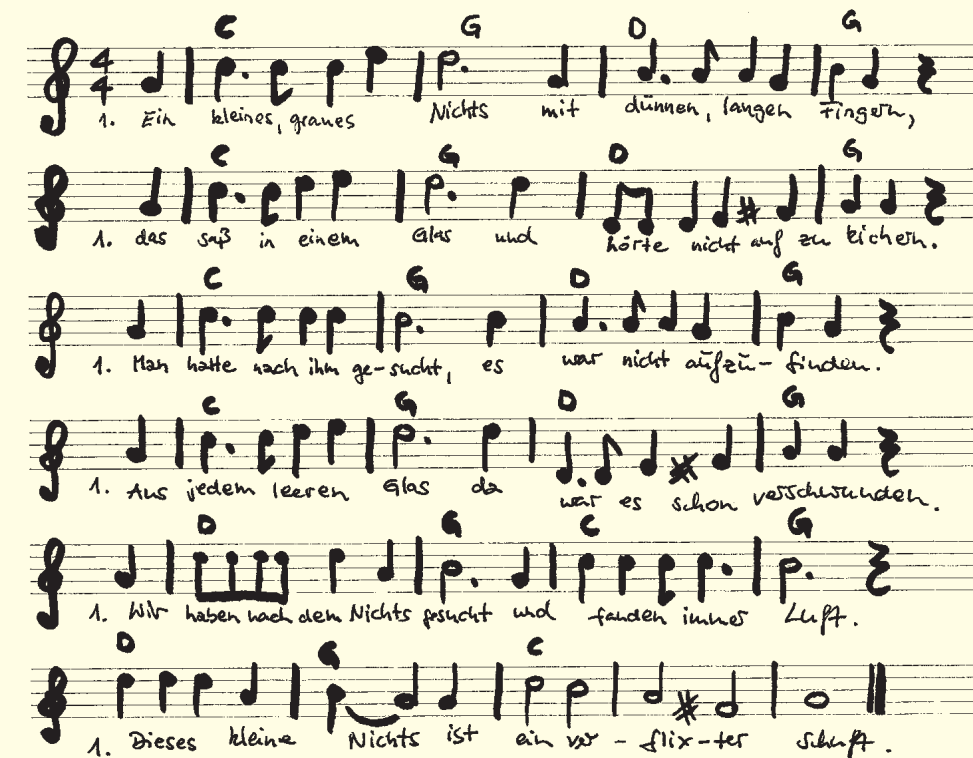 C G D G
4
4
1. Ein kleines, graues Nichts mit dünnen, langen Fingern,
C G D G
1. das saß in einem Glas und hörte nicht auf zu kichern.
C G D G
1. Man hatte nach ihm ge-sucht, es war nicht aufzu- finden.
C G D G
1. Aus jedem leeren Glas da war es schon verschwunden.
D G C G
1. Wir haben nach dem Nichts gesucht und fanden immer Luft.
D G C
1. Dieses kleine Nichts ist ein ver - flix-ter Schuft.